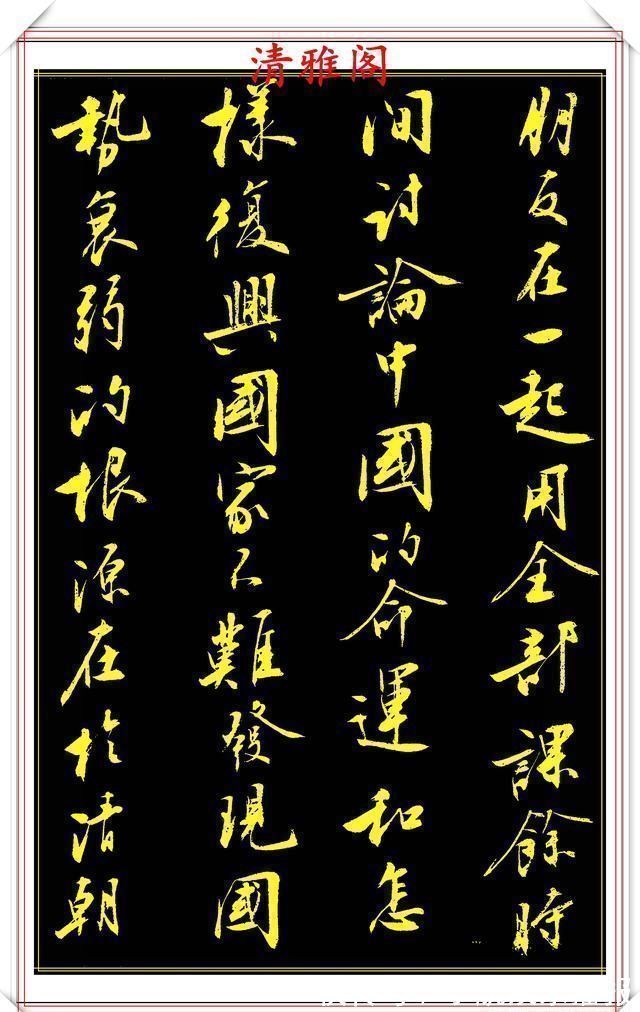 清雅阁
朋友在一起用全部課餘時
间討論中國的命運和怎
樣復興國家不難發現國
勢衰弱的根源在於清朝